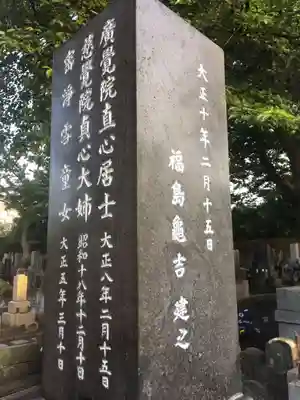 廣覺院直心居士 大正八年二月十五日
慈覺院貞心大姉 昭和十八年十二月十日
童女 大正五年三月十日
大正十年二月十五日
福島龜吉 建之